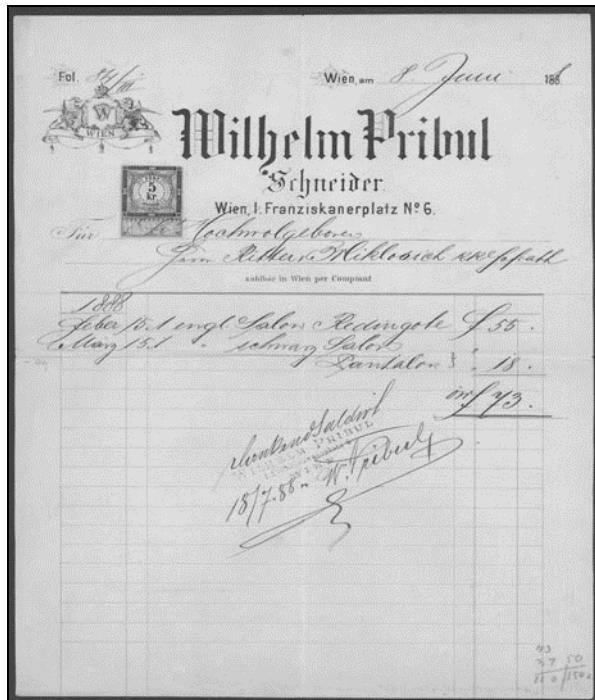 Fol. 84/III
Wien, am 8. Juni 1888
W
WIEN
Wilhelm Pribul
Schneider.
5
kr.
Wien, I. Franziskanerplatz No 6.
Für Hochwolgeboren
Herrn Ritter v. Miklosich
zahlbar in Wien per Comptant
1888
Feber 15. 1 engl. Salon Redingote f 55.
März 15. 1 " schwarz Salon
Pantalon " 18.
öw f 73.
dankend saldirt
WILHELM PRIBUL
WIEN
18/7. 88. W. Pribul